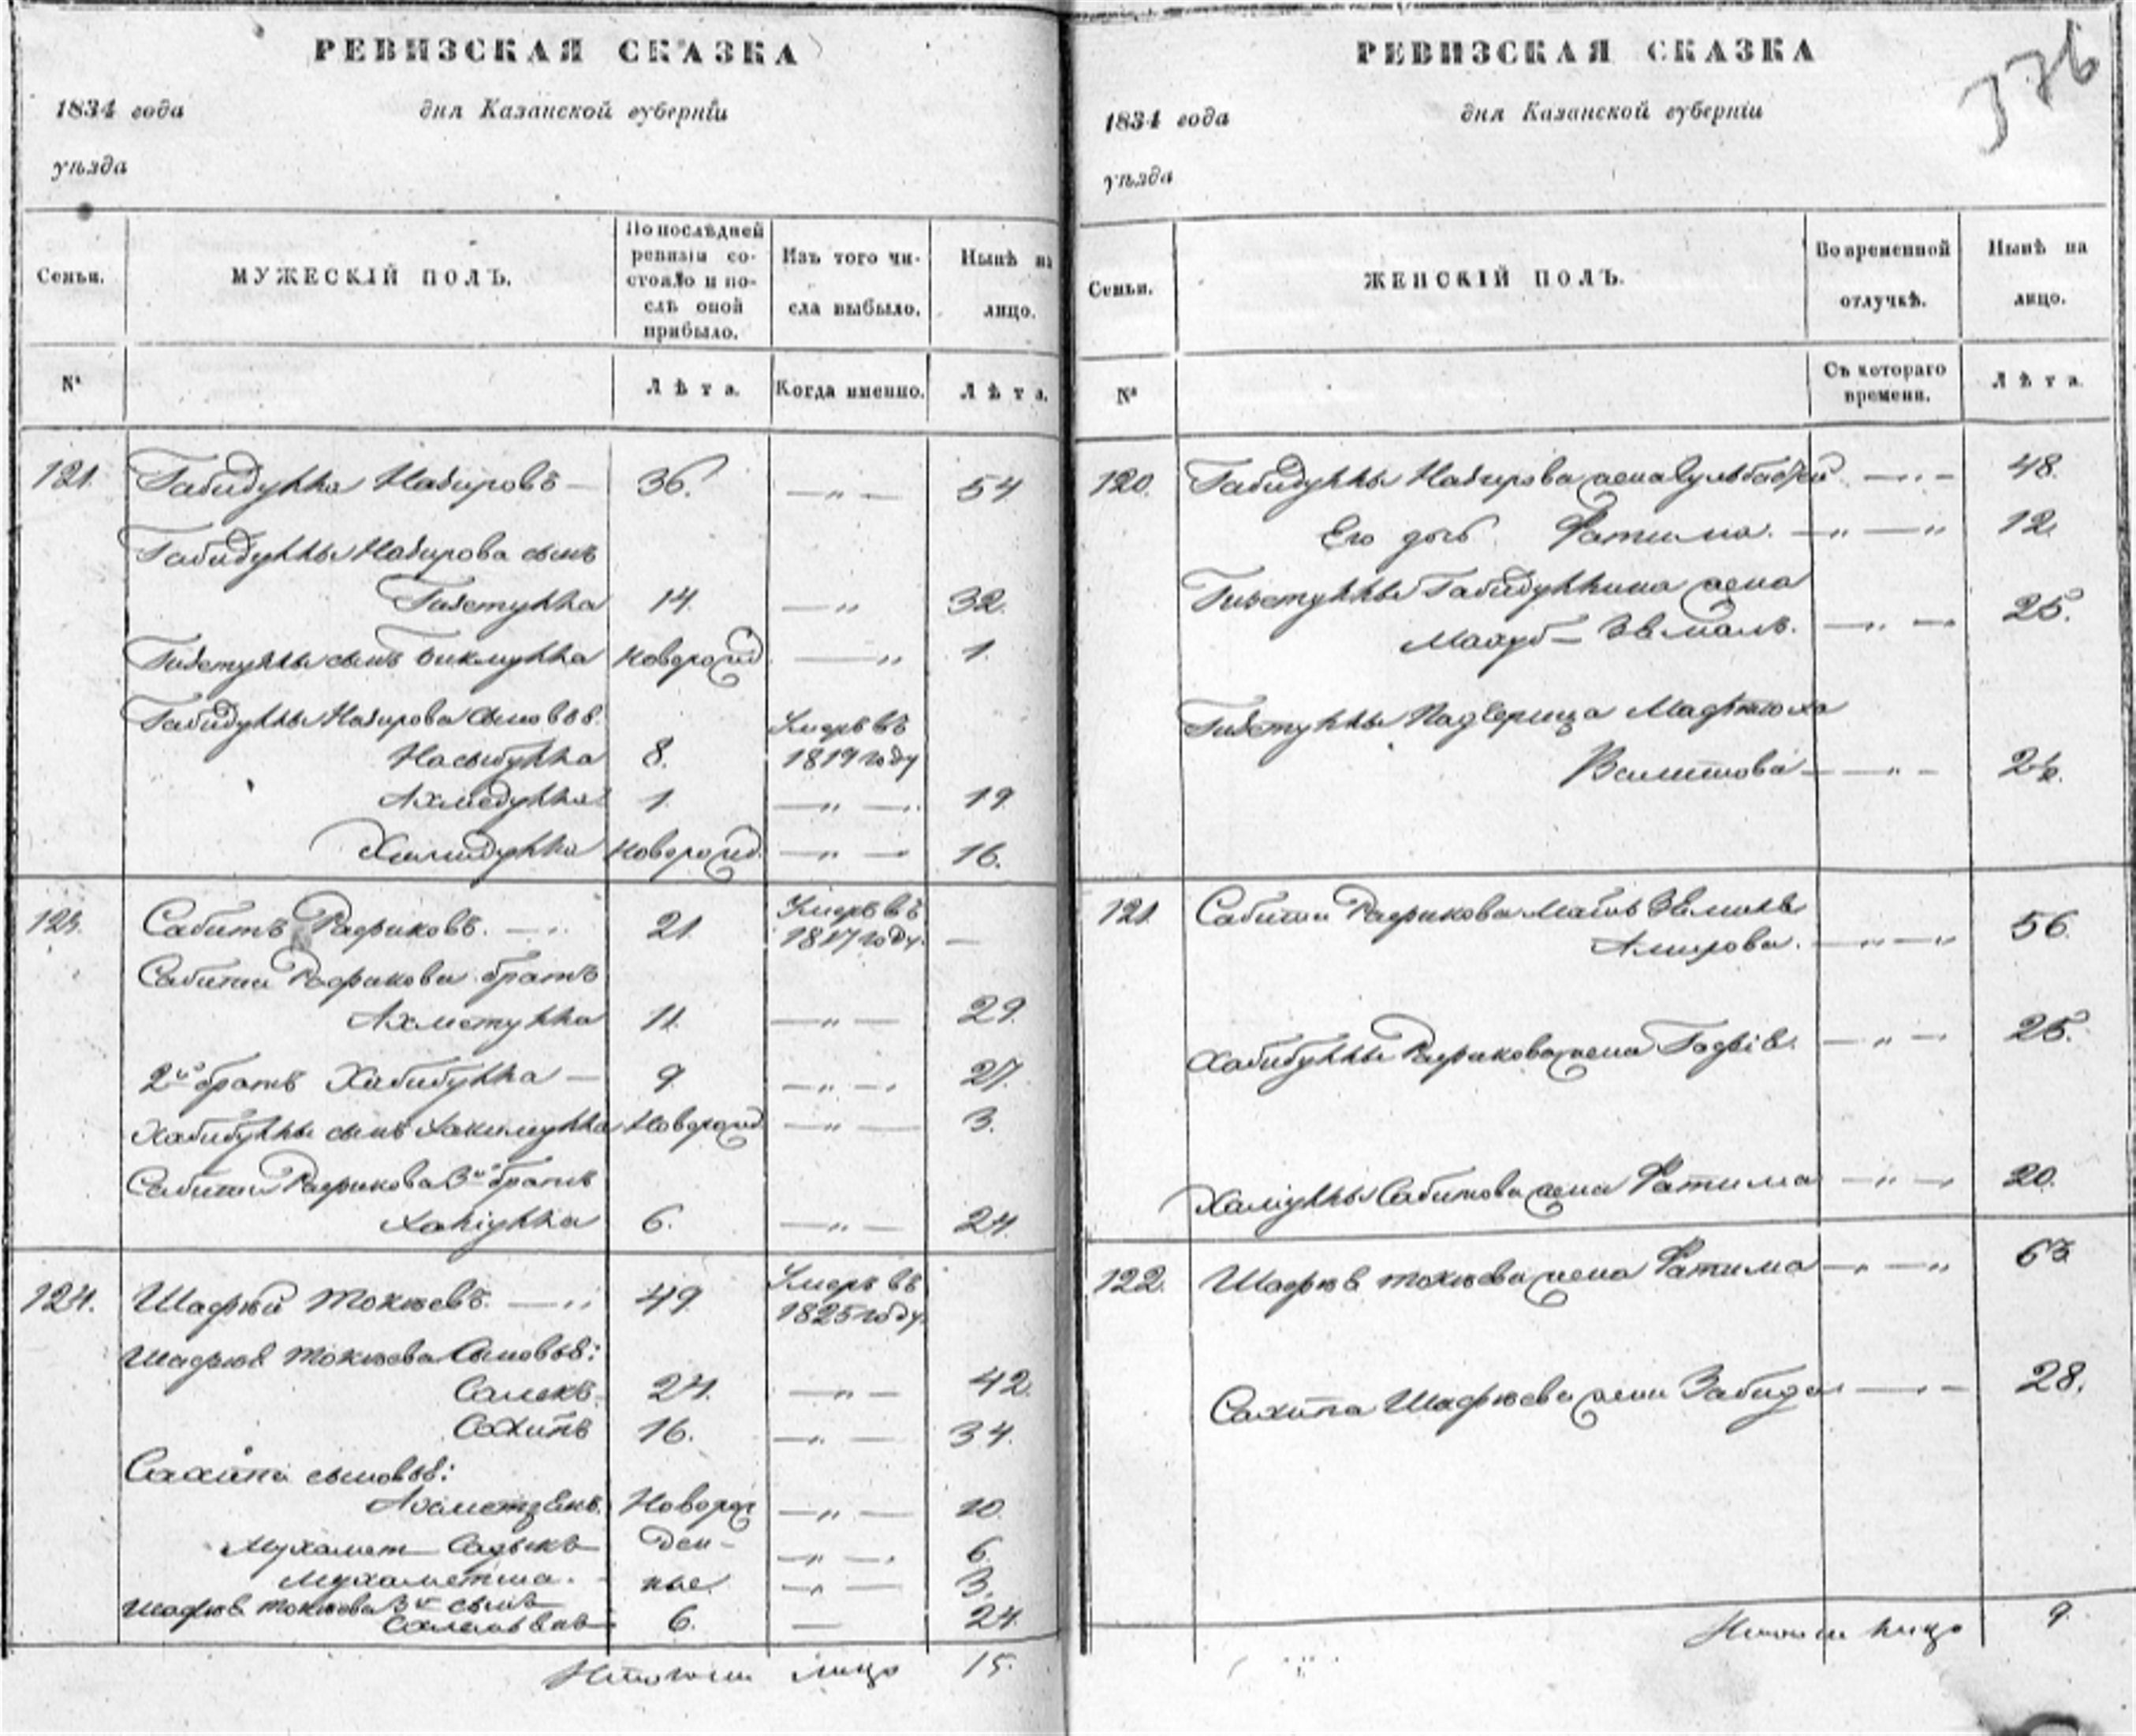 РЕВИЗСКАЯ СКАЗКА
1834 года дня Казанской губерніи
уѣзда
Семьи. МУЖЕСКІЙ ПОЛЪ. По послѣдней ревизіи состояло и послѣ оной прибыло. Изъ того числа выбыло. Нынѣ на лицо.
№ Лѣта. Когда именно. Лѣта.
121. Габидулла Набировъ — 36. — „ — 54
Габидуллы Набирова сынъ
14. — „ 32.
сынъ новорожд — „ 1.
Габидуллы Набирова сыновья: Умеръ въ
Насыбулла 8. 1819 году
Ахмедулла 1. — „ — 19
Халидулла новорожд. — „ — 16.
123. Сабитъ Рафиковъ. — 21. Умеръ въ 1817 году. —
Сабита Рафикова братъ
Ахметулла 11. — „ — 29.
2й братъ Хабибулла — 9. — „ — 27.
Хабибуллы сынъ Хакимулла Новорожд — „ — 3.
Сабита Рафикова 3й братъ
6. — „ — 24.
124. Шафѣй Токѣевъ. — 49. Умеръ въ 1825 году.
Шафѣя Токѣева сыновья:
Салекъ. 24. — „ — 42.
Сахипъ 16. — „ — 34.
Сахипа сыновья:
Ахметзянъ. Новорож — „ — 10.
Мухамет Садыкъ ден- — „ — 6.
Мухаметша. ные. — „ 3.
Шафѣя Токѣева 3й сынъ
6. — 24.
Итого на лицо 15.
РЕВИЗСКАЯ СКАЗКА
376
1834 года дня Казанской губерніи
уѣзда
Семьи. ЖЕНСКІЙ ПОЛЪ. Во временной отлучкѣ. Нынѣ на лицо.
№ Съ котораго времени. Лѣта.
120. Габидуллы Набирова жена — „ — 48.
Его дочь Фатима. — „ — „ 12.
Габидуллина жена
— „ — 25.
Падчерица
Валитова — „ —
121. Сабита Рафикова мать
Амирова. — „ — „ 56.
Хабибуллы Рафикова жена — „ — 25.
Сабитова жена Фатима — „ — 20.
122. Шафѣя Токѣева жена Фатима — „ — „ 63
Сахипа Шафѣева жена Забида — „ — 28.
Итого на лицо 9.